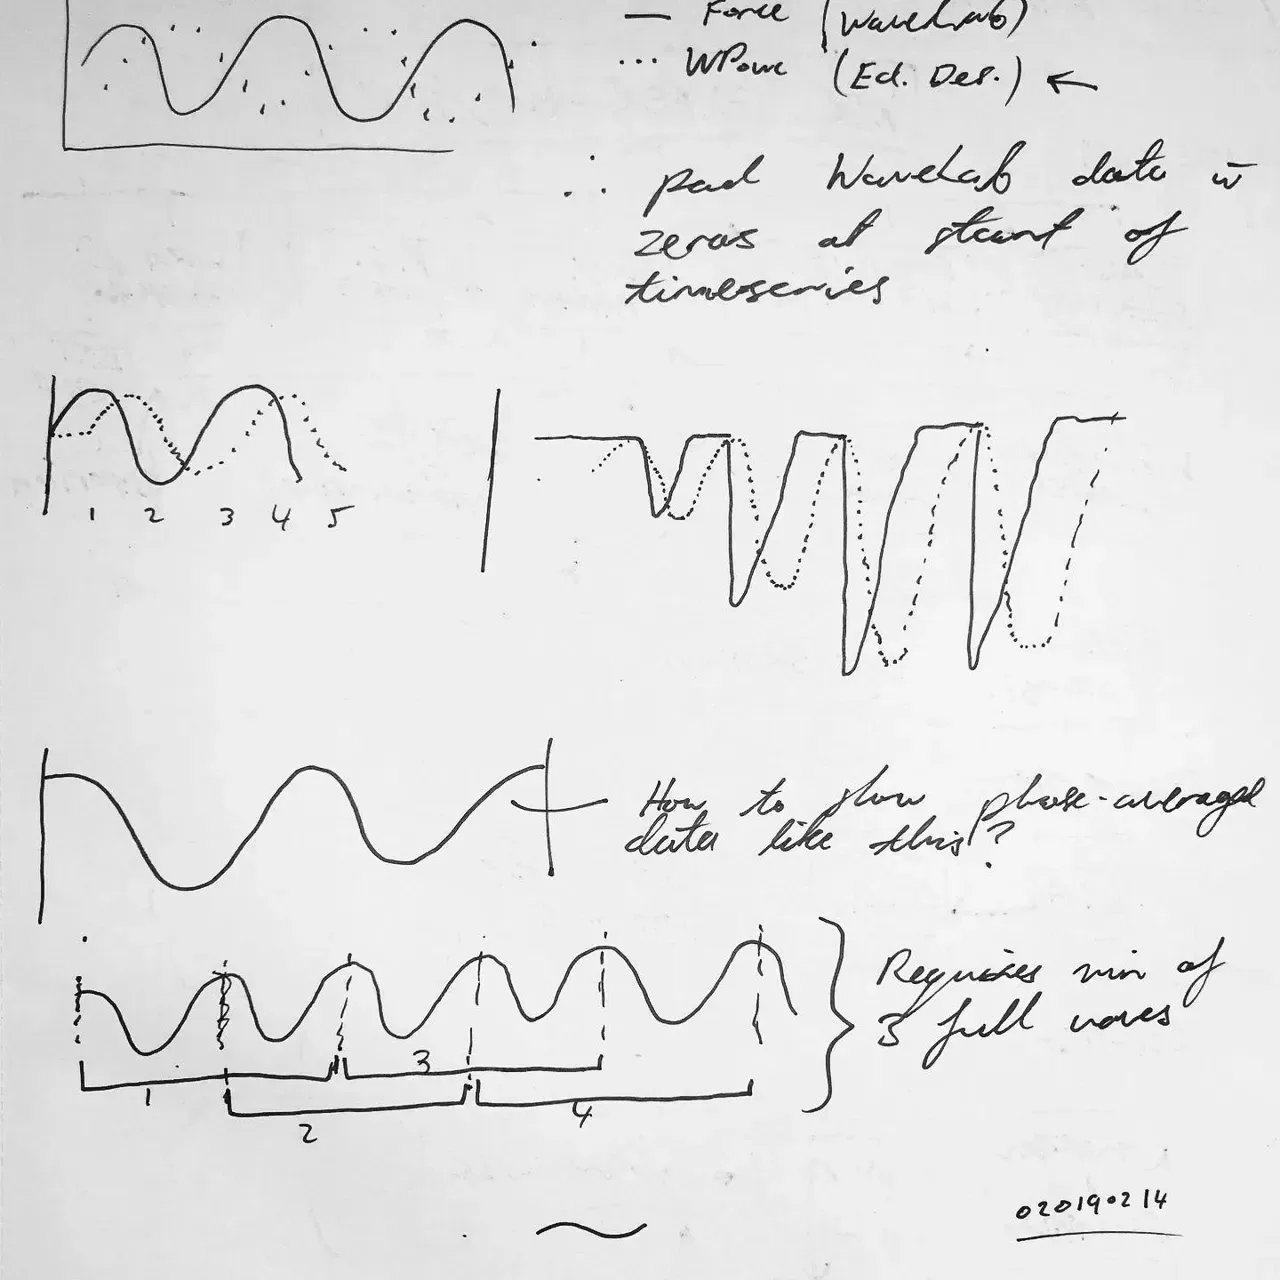 — Force (WaveLab)
... WPower (Ed. Des.) ←
∴ pad WaveLab data w̄
zeros at start of
timeseries
1 2 3 4 5
How to show phase-averaged
data like this?
Requires min of
3 full waves
3
1
4
2
02019 02 14